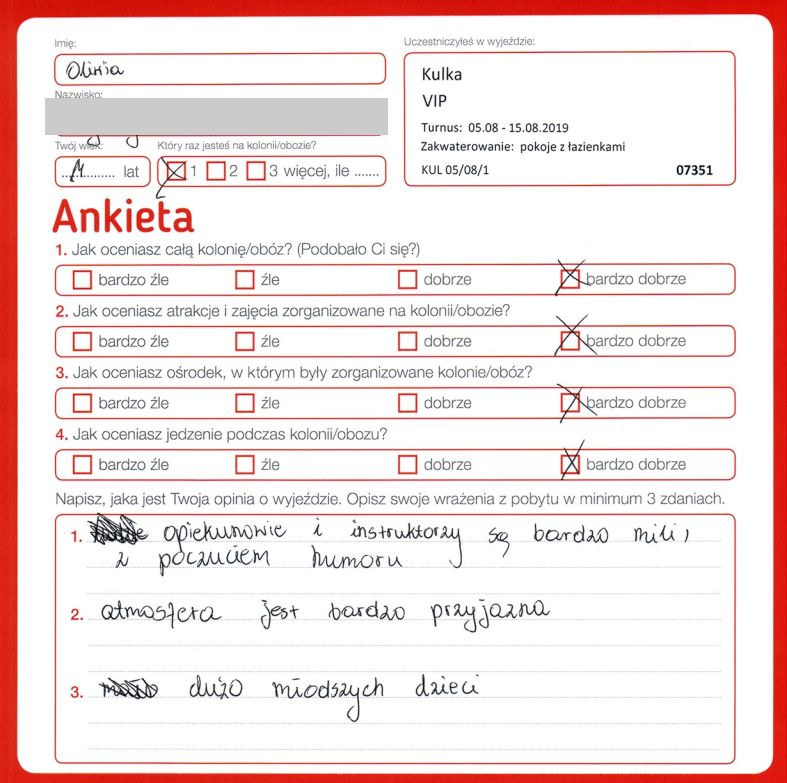 Imię:
Oliwia
Nazwisko:
Twój wiek:
lat
Który raz jesteś na kolonii/obozie?
1 2 3 więcej, ile .......
Uczestniczyłeś w wyjeździe:
Kulka
VIP
Turnus: 05.08 - 15.08.2019
Zakwaterowanie: pokoje z łazienkami
KUL 05/08/1 07351
Ankieta
1. Jak oceniasz całą kolonię/obóz? (Podobało Ci się?)
bardzo źle źle dobrze bardzo dobrze
2. Jak oceniasz atrakcje i zajęcia zorganizowane na kolonii/obozie?
bardzo źle źle dobrze bardzo dobrze
3. Jak oceniasz ośrodek, w którym były zorganizowane kolonie/obóz?
bardzo źle źle dobrze bardzo dobrze
4. Jak oceniasz jedzenie podczas kolonii/obozu?
bardzo źle źle dobrze bardzo dobrze
Napisz, jaka jest Twoja opinia o wyjeździe. Opisz swoje wrażenia z pobytu w minimum 3 zdaniach.
1. opiekunowie i instruktorzy są bardzo mili,
z poczuciem humoru
2. atmosfera jest bardzo przyjazna
3. dużo młodszych dzieci